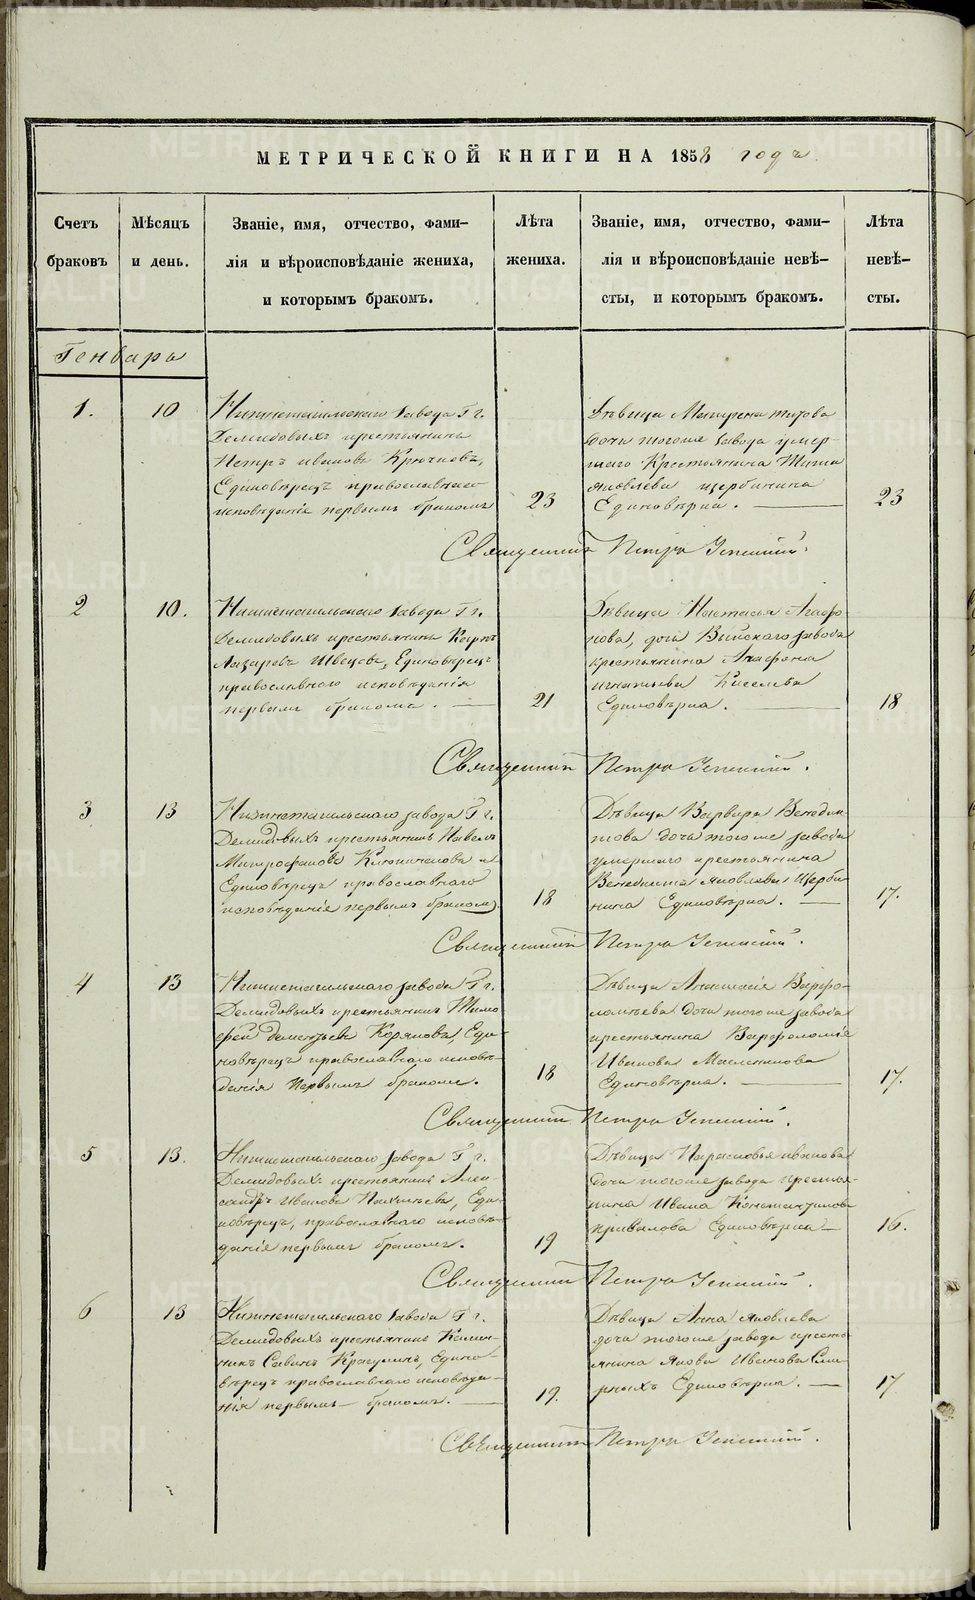 МЕТРИЧЕСКОЙ КНИГИ НА 1858 годъ
Счетъ браковъ
Мѣсяцъ и день.
Званіе, имя, отчество, фами-
лія и вѣроисповѣданіе жениха,
и которымъ бракомъ.
Лѣта жениха.
Званіе, имя, отчество, фами-
лія и вѣроисповѣданіе невѣ-
сты, и которымъ бракомъ.
Лѣта невѣ-
сты.
Генварь
1.
10
Нижнетагильскаго завода Гг.
Демидовыхъ крестьянинъ
Петръ Ивановъ Крючковъ,
Единовѣрецъ православнаго
исповѣданія первымъ бракомъ
23
Дѣвица Титова
дочь тогоже завода умер-
шаго Крестьянина Тита
Яковлева Щербинина
Единовѣрка.
23
Священникъ Петръ
2
10.
Нижнетагильскаго завода Гг.
Демидовыхъ крестьянинъ Карпъ
Лазаревъ Швецовъ, Единовѣрецъ
православнаго исповѣданія
первымъ бракомъ.
21
Дѣвица Настасья Агафо-
нова, дочь Выйскаго завода
крестьянина Агафона
Игнатьева Киселева
Единовѣрка.
18
Священникъ Петръ
3
13
Нижнетагильскаго завода Гг.
Демидовыхъ крестьянинъ Павелъ
Митрофановъ
Единовѣрецъ православнаго
исповѣданія первымъ бракомъ
18
Дѣвица Варвара Венедик-
това дочь тогоже завода
умершаго крестьянина
Венедикта Яковлева Щерби-
нина Единовѣрка.
17.
Священникъ Петръ
4
13
Нижнетагильскаго завода Гг.
Демидовыхъ крестьянинъ Тимо-
фей Дементьевъ Коряковъ, Еди-
новѣрецъ православнаго исповѣ-
данія Первымъ бракомъ.
18
Дѣвица Варфо-
ломѣева дочь тогоже завода
крестьянина Варфоломѣя
Иванова Масленикова
Единовѣрка.
17.
Священникъ Петръ
5
13.
Нижнетагильскаго завода Гг.
Демидовыхъ крестьянинъ Алек-
сандръ Ивановъ Еди-
новѣрецъ, православнаго исповѣ-
данія первымъ бракомъ.
19
Дѣвица Парасковья Иванова
дочь тогоже завода крестья-
нина Ивана Константинова
Привалова Единовѣрка
16.
Священникъ Петръ
6
13
Нижнетагильскаго завода Гг.
Демидовыхъ крестьянинъ Калин-
никъ Савинъ Едино-
вѣрецъ православнаго исповѣда-
нія первымъ бракомъ.
19.
Дѣвица Анна Яковлева
дочь тогоже завода кресть-
янина Якова Иванова Сми-
рныхъ Единовѣрка.
17
Священникъ Петръ
METRIKI.GASO-URAL.RU